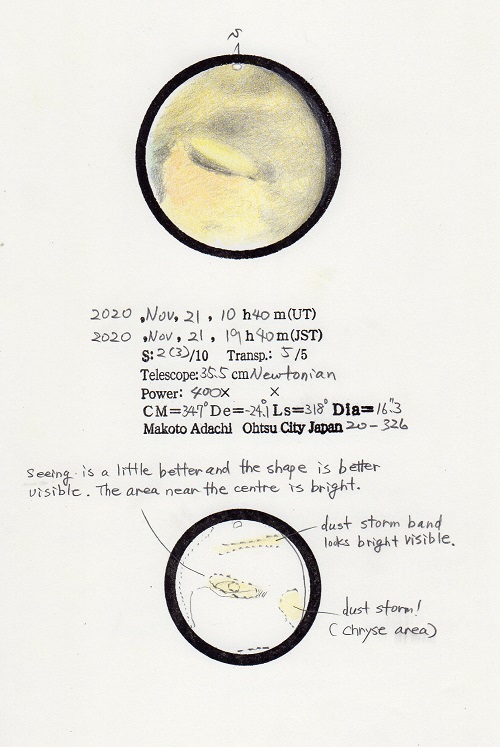 2020, Nov, 21, 10 h 40 m (UT)
2020, Nov, 21, 19 h 40 m (JST)
S: 2(3)/10 Transp.: 5/5
Telescope: 35.5 cm Newtonian
Power: 400× ×
CM=347° De=-24.1 Ls=318° Dia=16".3
Makoto Adachi Ohtsu City Japan 20-326
Seeing is a little better and the shape is better
visible. The area near the centre is bright.
dust storm band
looks bright visible.
dust storm!
(Chryse area)